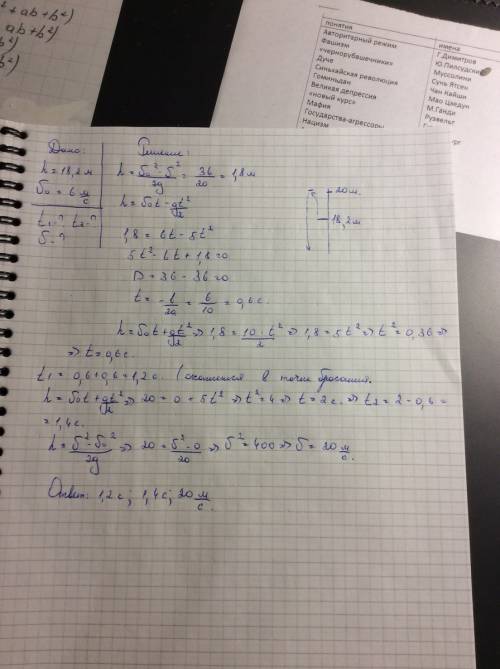 ² + ab + b²)
ab + b²)
b²)
b²)
понятия имена
Авторитарный режим Г.Димитров
Фашизм Ю.Пилсудский
«чернорубашечники» Муссолини
Дуче Сунь Ятсен
Синьхайская революция Чан Кайши
Гоминьдан Мао Цзедун
Великая депрессия М.Ганди
«новый курс» Рузвельт
Мафия
Государства-агрессоры
Нацизм
Дано: Решение:
h = 18,2 м
v₀ = 6 м/с
t₁-? t₂-?
v-?
h = (v₀² - v²)/2g = 36/20 = 1,8 м
h = v₀t - gt²/2
1,8 = 6t - 5t²
5t² - 6t + 1,8 = 0
D = 36 - 36 = 0
t = -b/2a = 6/10 = 0,6 с.
20 м.
18,2 м
h = v₀t + gt²/2 => 1,8 = 10·t²/2 => 1,8 = 5t² => t² = 0,36 =>
=> t = 0,6 с.
t₁ = 0,6 + 0,6 = 1,2 с. (окажется в точке бросания.
h = v₀t + gt²/2 => 20 = 0 + 5t² => t² = 4 => t = 2 с. => t₂ = 2 - 0,6 =
= 1,4 с.
h = (v² - v₀²)/2g => 20 = (v² - 0)/20 => v² = 400 => v = 20 м/с.
Ответ: 1,2 с; 1,4 с; 20 м/с.